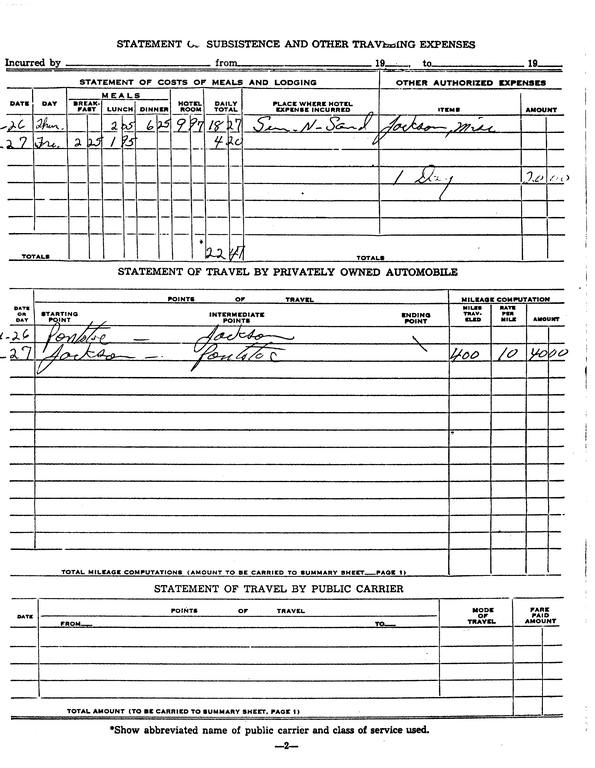 STATEMENT OF SUBSISTENCE AND OTHER TRAVELING EXPENSES
Incurred by from 19 , to 19
STATEMENT OF COSTS OF MEALS AND LODGING OTHER AUTHORIZED EXPENSES
MEALS
DATE DAY BREAK-FAST LUNCH DINNER HOTEL ROOM DAILY TOTAL PLACE WHERE HOTEL EXPENSE INCURRED ITEMS AMOUNT
-26 Thur. 2 05 6 25 9 97 18 27 Sun-N-Sand Jackson, Miss
27 Fri. 2 25 1 95 4 20
1 Day 20 00
TOTALS * 22 47 TOTALS
STATEMENT OF TRAVEL BY PRIVATELY OWNED AUTOMOBILE
POINTS OF TRAVEL MILEAGE COMPUTATION
DATE OR DAY STARTING POINT INTERMEDIATE POINTS ENDING POINT MILES TRAV-ELED RATE PER MILE AMOUNT
-26 Pontotoc — Jackson
-27 Jackson — Pontotoc 400 10 40 00
TOTAL MILEAGE COMPUTATIONS (AMOUNT TO BE CARRIED TO SUMMARY SHEET—PAGE 1)
STATEMENT OF TRAVEL BY PUBLIC CARRIER
DATE POINTS OF TRAVEL MODE OF TRAVEL FARE PAID AMOUNT
FROM— TO—
TOTAL AMOUNT (TO BE CARRIED TO SUMMARY SHEET, PAGE 1)
*Show abbreviated name of public carrier and class of service used.
—2—